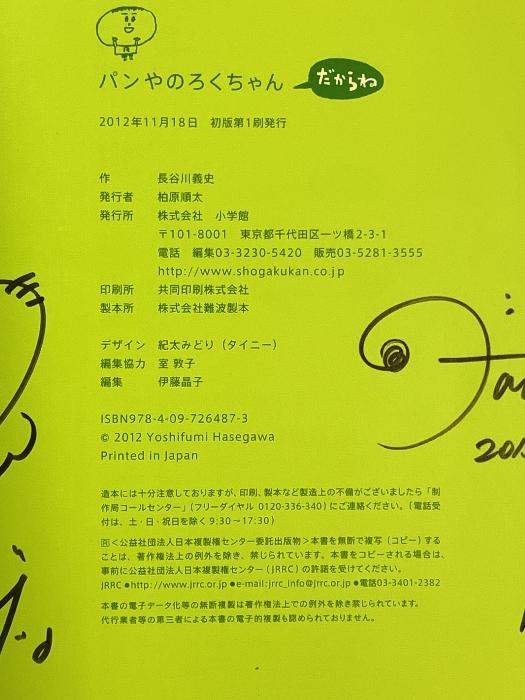 パンやのろくちゃん だからね
2012年11月18日　初版第1刷発行
作　長谷川義史
発行者　柏原順太
発行所　株式会社　小学館
〒101-8001　東京都千代田区一ツ橋2-3-1
電話　編集03-3230-5420　販売03-5281-3555
http://www.shogakukan.co.jp
印刷所　共同印刷株式会社
製本所　株式会社難波製本
デザイン　紀太みどり（タイニー）
編集協力　室 敦子
編集　伊藤晶子
ISBN978-4-09-726487-3
© 2012 Yoshifumi Hasegawa
Printed in Japan
造本には十分注意しておりますが、印刷、製本など製造上の不備がございましたら「制
作局コールセンター」（フリーダイヤル 0120-336-340）にご連絡ください。（電話受
付は、土・日・祝日を除く 9:30〜17:30）
R＜公益社団法人日本複製権センター委託出版物＞本書を無断で複写（コピー）する
ことは、著作権法上の例外を除き、禁じられています。本書をコピーされる場合は、
事前に公益社団法人日本複製権センター（JRRC）の許諾を受けてください。
JRRC ●http://www.jrrc.or.jp ●e-mail:jrrc_info@jrrc.or.jp ●電話03-3401-2382
本書の電子データ化等の無断複製は著作権法上での例外を除き禁じられています。
代行業者等の第三者による本書の電子的複製も認められておりません。